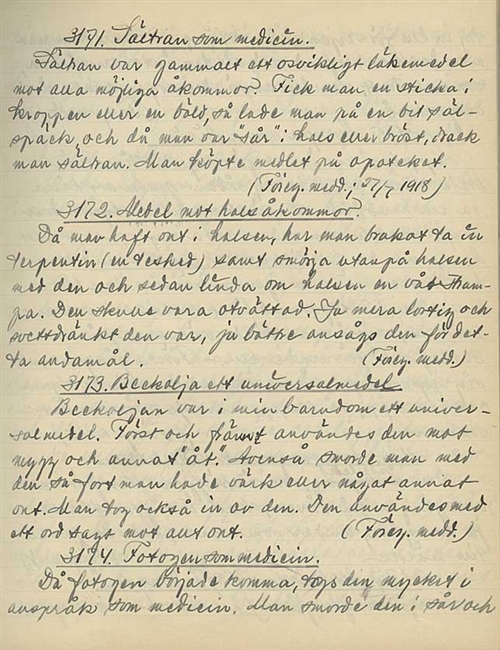 3171. Sältran som medicin.
Sältran var gammalt ett osvikligt läkemedel
mot alla möjliga åkommor. Fick man en sticka i
kroppen eller en böld, så lade man på en bit säl-
späck, och då man var "sår" i hals eller bröst, drack
man sältran. Man köpte medlet på apoteket.
(Föreg. medd., 27/7 1918)
3172. Medel mot halsåkommor.
Då man haft ont i halsen, har man brukat ta in
terpentin (en tesked) samt smörja utanpå halsen
med den och sedan linda om halsen en våt strum-
pa. Den skulle vara otvättad. Ju mera lortig och
svettdränkt den var, ju bättre ansågs den för det-
ta ändamål. (Föreg. medd.)
3173. Beckolja ett universalmedel
Beckoljan var i min barndom ett univer-
salmedel. Först och främst användes den mot
mygg och annat "åt". Avenså smorde man med
den så fort man hade värk eller något annat
ont. Man tog också in av den. Den användes med
ett ord sagt mot allt ont. (Föreg. medd.)
3174. Fotogen som medicin.
Då fotogen började komma, togs den mycket i
anspråk som medicin. Man smorde den i sår och